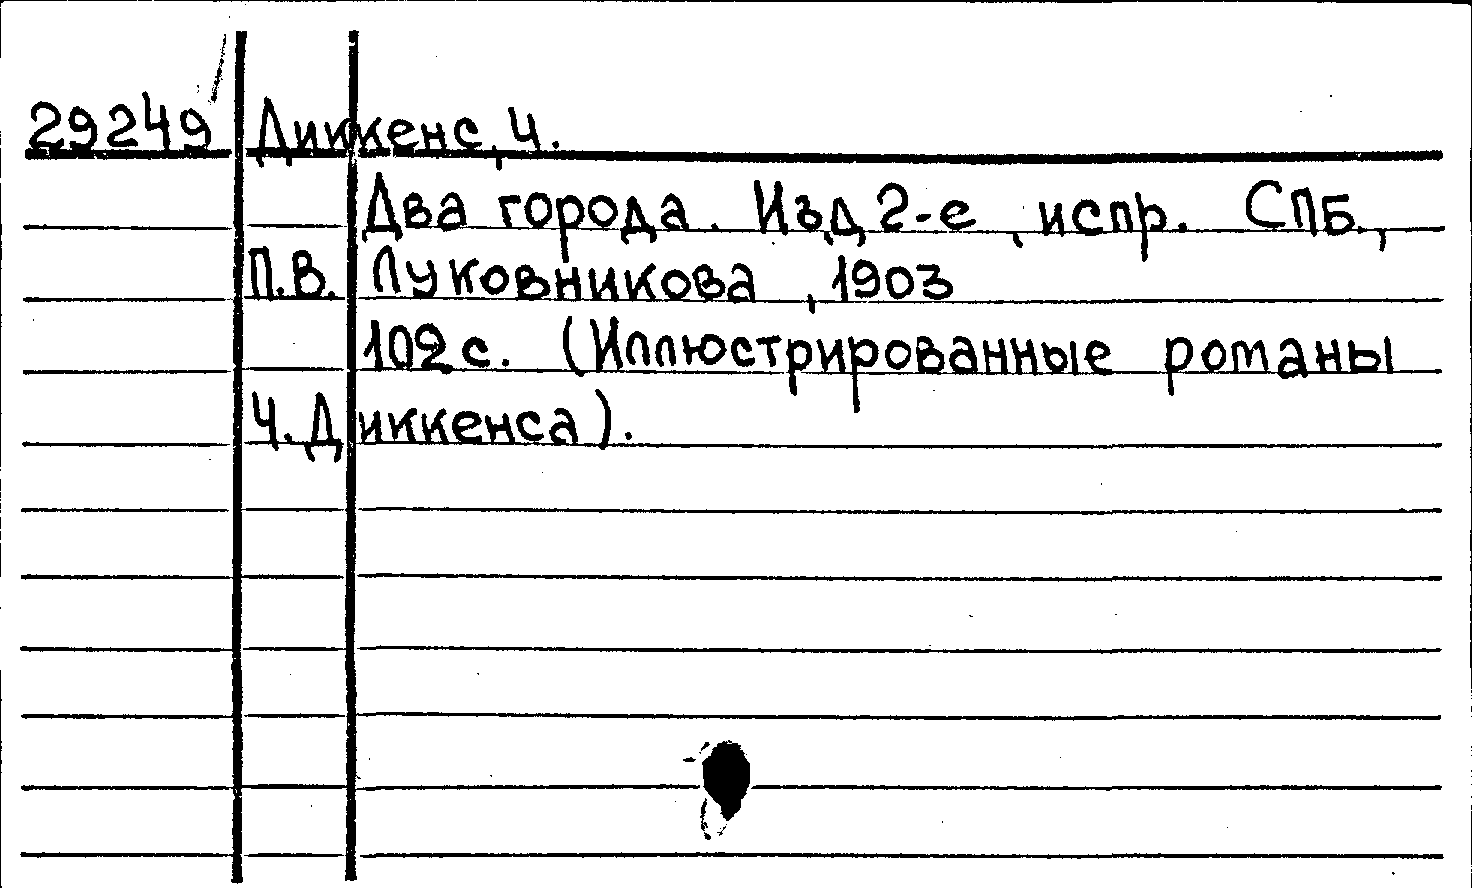 29249 Диккенс, Ч.
Два города. Изд. 2-е, испр. СПБ.,
П.В. Луковникова, 1903
102 с. (Иллюстрированные романы
Ч. Диккенса).